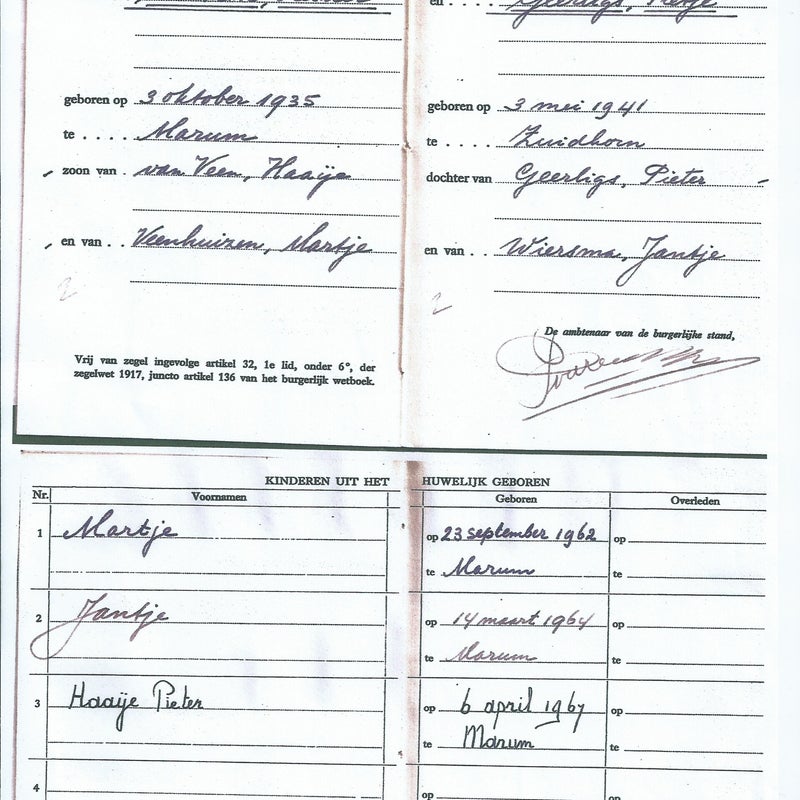 en . . . . Geerligs,
geboren op 3 oktober 1935
te . . . . . Marum
zoon van . van Veen, Haaije
en van . . Veenhuizen, Martje
2
Vrij van zegel ingevolge artikel 32, 1e lid, onder 6°, der
zegelwet 1917, juncto artikel 136 van het burgerlijk wetboek.
geboren op 3 mei 1941
te . . . . Zuidhorn
dochter van Geerligs, Pieter
en van . . Wiersma, Jantje
2
De ambtenaar van de burgerlijke stand,
KINDEREN UIT HET HUWELIJK GEBOREN
Nr. Voornamen Geboren Overleden
1 Martje op 23 september 1962 op
te Marum te
2 Jantje op 14 maart 1964 op
te Marum te
3 Haaije Pieter op 6 april 1967 op
te Marum te
4 op op